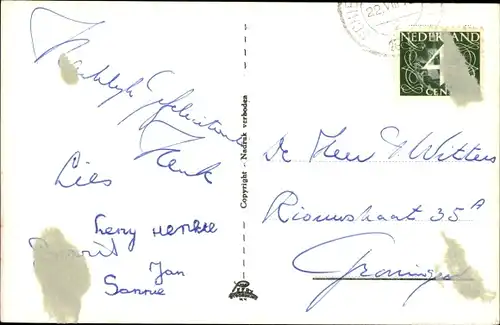 Hartelijk Gefeliciteerd
Henk
Lies
Leny HENKIE
Jan
Sannie
Copyright - Nadruk verboden
22.VIII
NEDERLAND
4
CENT
De Heer J Witters
Riouwstraat 35A
Groningen